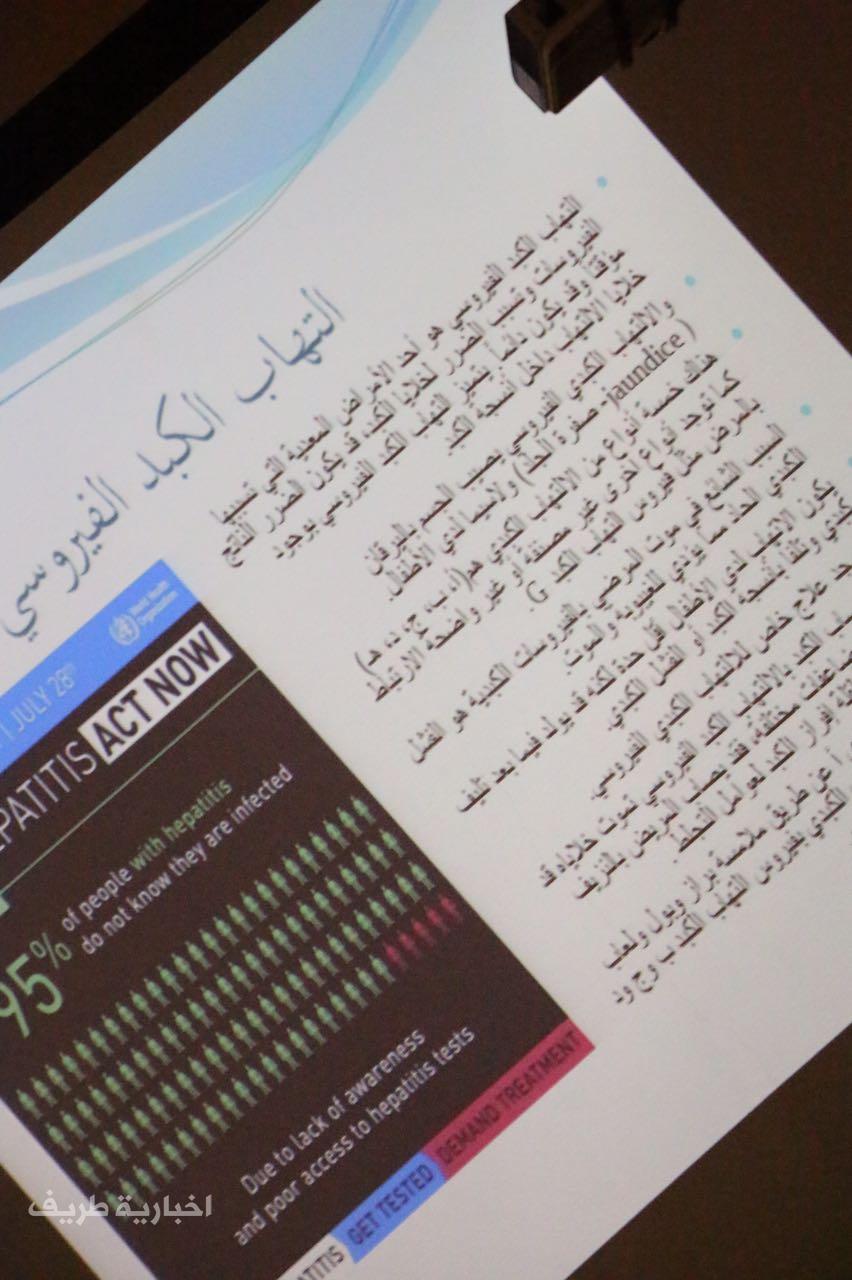 التهاب الكبد الفيروسي
التهاب الكبد الفيروسي هو أحد الأمراض المعدية التي تسببها
الفيروسات وتسبب الضرر لخلايا الكبد، قد يكون الضرر الناتج
مؤقتاً وقد يكون دائماً يتميز التهاب الكبد الفيروسي بوجود
خلايا الالتهاب داخل أنسجة الكبد
والالتهاب الكبدي الفيروسي يصيب الجسم باليرقان
(Jaundice - صفرة الجلد) ولاسيما لدى الأطفال.
هناك خمسة أنواع من الالتهاب الكبدي هم(أ، ب، ج، د، هـ)
كما توجد أنواع أخرى غير مصنفة أو غير واضحة الارتباط
بالمرض مثل فيروس التهاب الكبد G.
السبب الشائع في موت المرضي بالفيروسات الكبدية هو الفشل
الكبدي الحاد مما يؤدي للغيبوبة والموت
يكون الالتهاب لدى الأطفال أقل حدة لكنه قد يولد فيما بعد تليف
كبدي وتلفا بأنسجة الكبد أو الفشل الكبدي.
علاج خاص للالتهاب الكبدي الفيروسي.
الكبد بالالتهاب الكبد الفيروسي تموت خلاياه قد
مضاعفات مختلفة، فقد يصاب المريض بالنزيف
إفراز الكبد لعوامل التجلط.
أ عن طريق ملامسة براز وبول ولعاب
الكبدي بفيروس التهاب الكبد ب وج ود
World Health
Organization
| JULY 28TH
PATITIS ACT NOW
95% of people with hepatitis
do not know they are infected
Due to lack of awareness
and poor access to hepatitis tests
TITIS GET TESTED DEMAND TREATMENT
اخبارية طريف